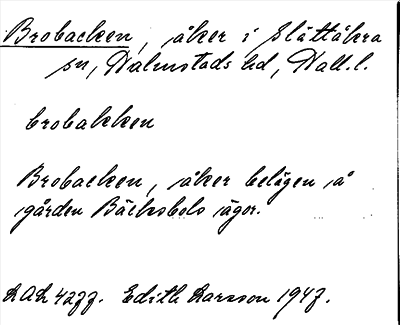 Brobacken, åker i Slättåkra
sn, Halmstads hd, Hall.l.
brobakken
Brobacken, åker belägen å
gården Bäcksbols ägor.
LAL 4277. Edith Larsson 1947.